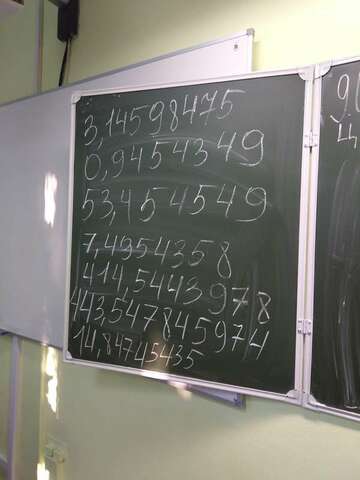 3,14598475
0,9454349
53,454549
7,4954358
414,5443978
443,5478459744
14,84745435